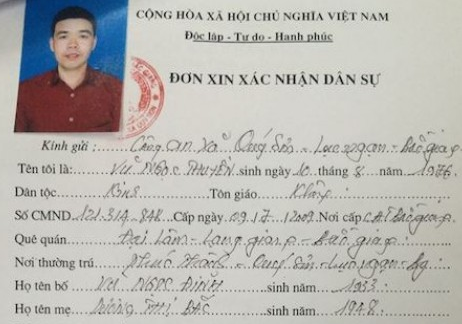 CỘNG HÒA XÃ HỘI CHỦ NGHĨA VIỆT NAM
Độc lập - Tự do - Hạnh phúc
ĐƠN XIN XÁC NHẬN DÂN SỰ
Kính gửi : Công an Xã Quý Sơn - Lục ngạn - Bắc giang
Tên tôi là: Vũ Ngọc sinh ngày 10 tháng 8 năm 1976
Dân tộc Kinh Tôn giáo Không
Số CMND 121.314.848 Cấp ngày 09.17.12009 Nơi cấp CA Bắc giang
Quê quán Đại Lâm - Lạng giang - Bắc giang
Nơi thường trú - Quý Sơn - Lục ngạn - Bg
Họ tên bố Vũ Ngọc sinh năm 1933
Họ tên mẹ Thị Bắc sinh năm 1948